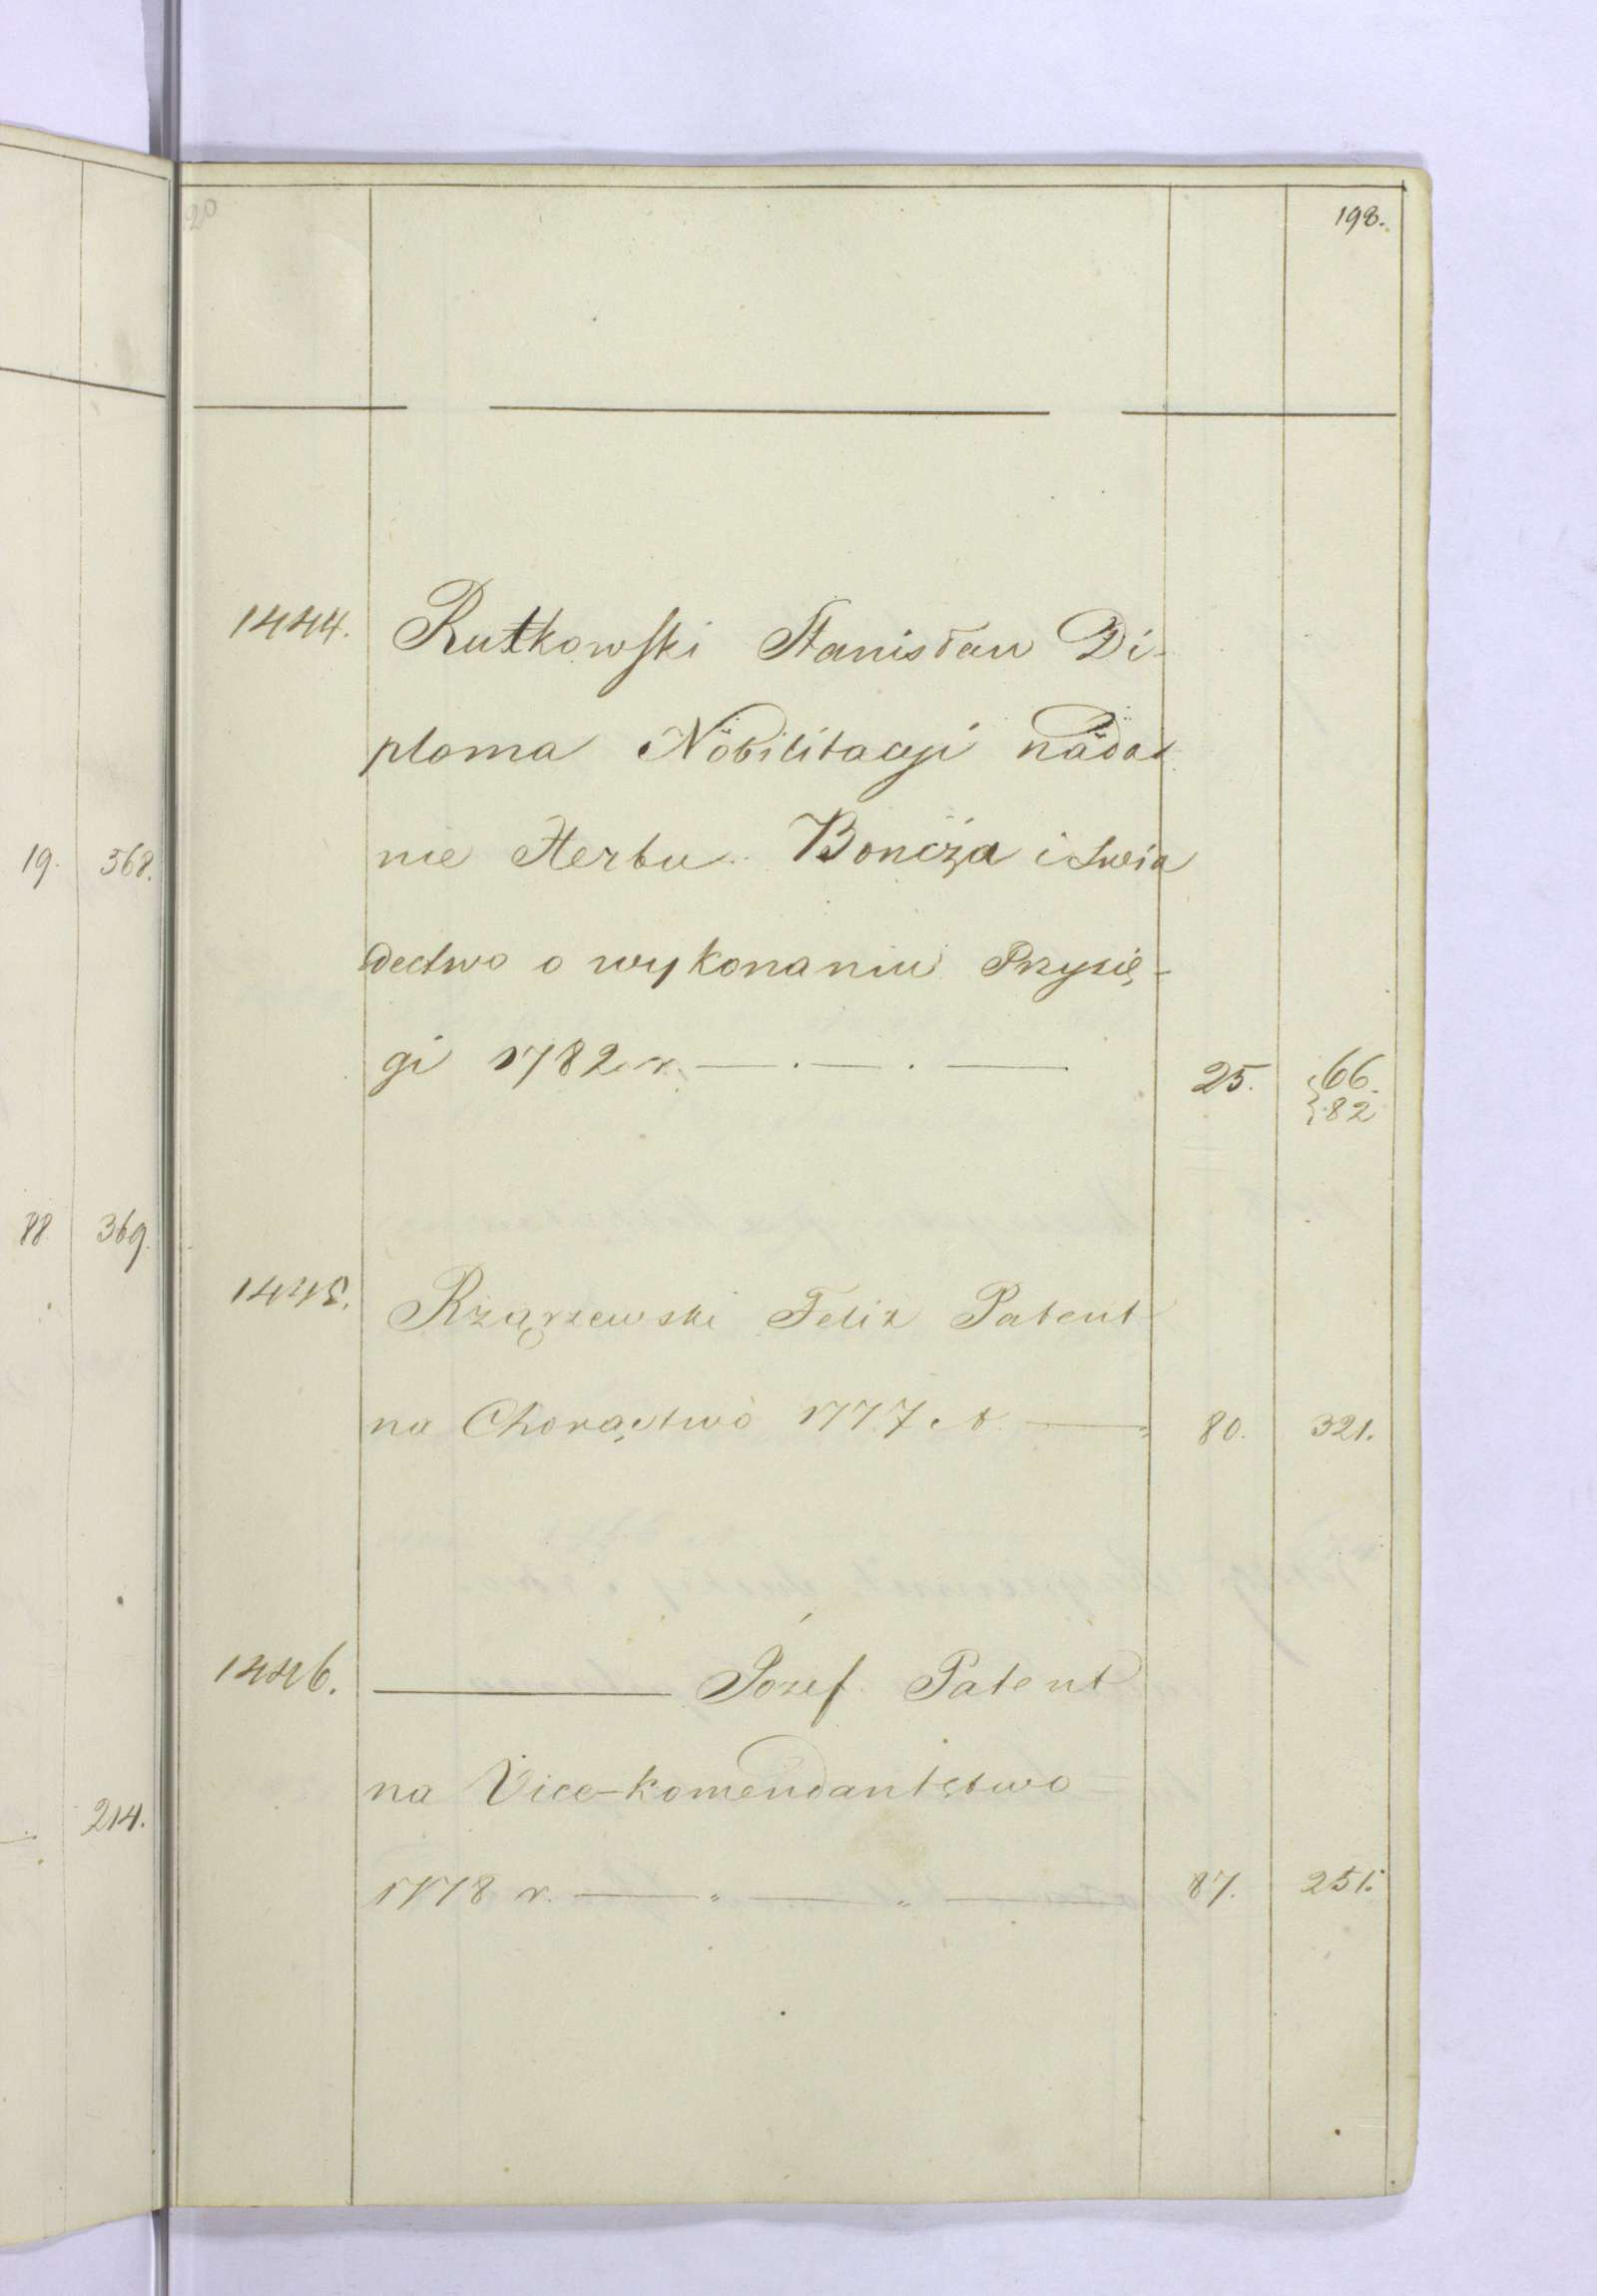 20
198.
19. 568.
88 369.
214.
1444. Rutkowski Stanisław Di-
ploma Nobilitacyi nada-
nie Herbu Boncza i Swia
dectwo o wykonaniu Przysię-
gi 1782 r. 25. 66.
82
1445. Rzązewski Felix Patent
na Chorąstwo 1777 r. 80. 321.
1446. Józef Patent
na Vice-komendantstwo
1778 r. 87. 251.